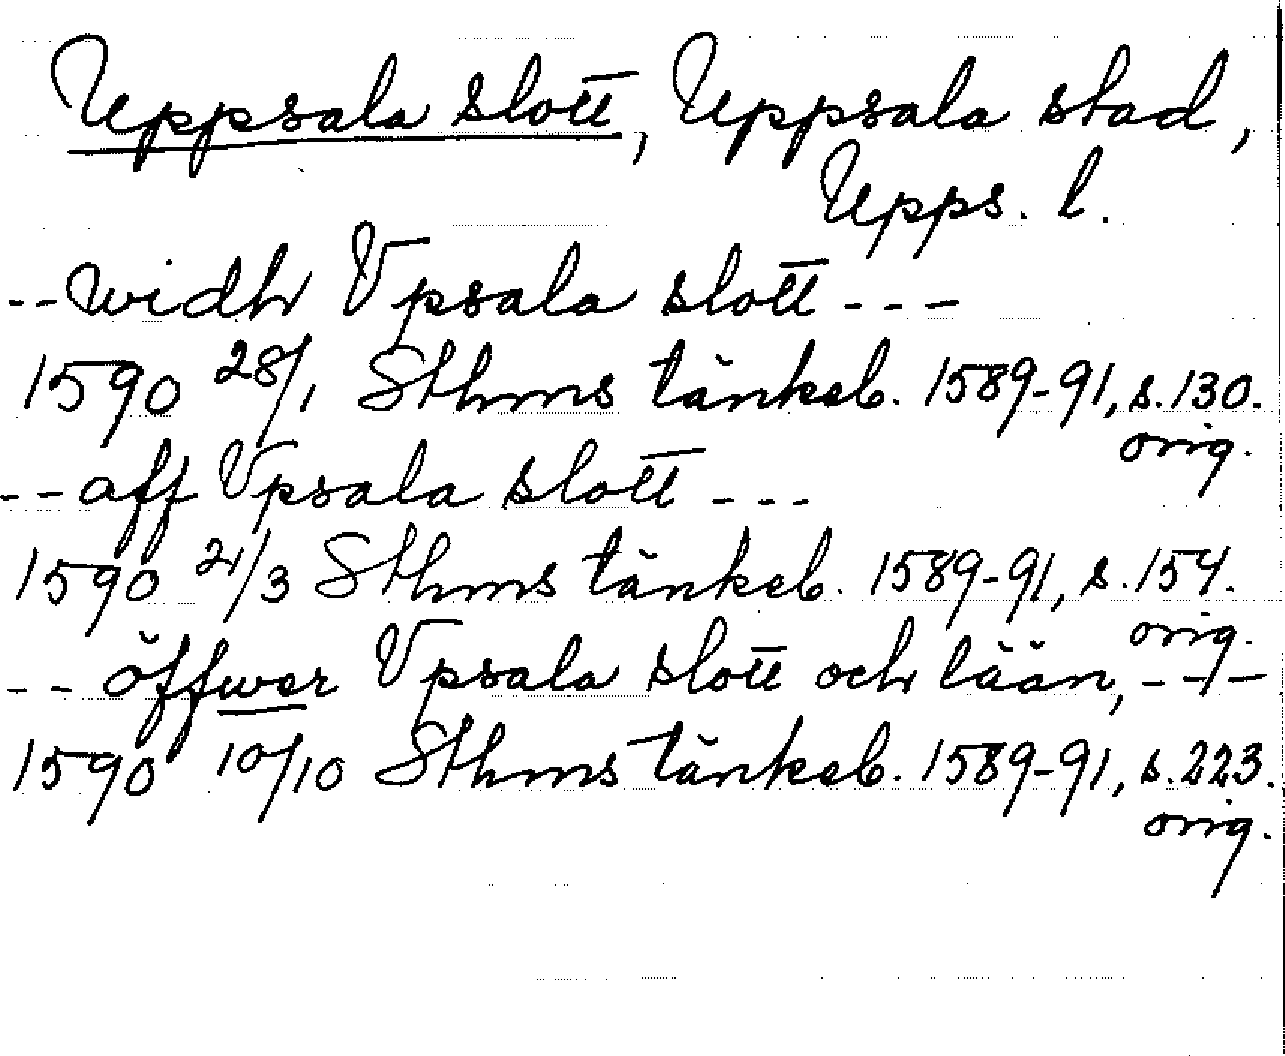 Uppsala slott, Uppsala stad,
Upps. l.
--widh Vpsala slott---
1590 28/1 Sthms tänkeb. 1589-91, s. 130.
orig.
--aff Vpsala slott---
1590 21/3 Sthms tänkeb. 1589-91, s. 154.
orig.
--öffwer Vpsala slott och lään, ---
1590 10/10 Sthms tänkeb. 1589-91, s. 223.
orig.